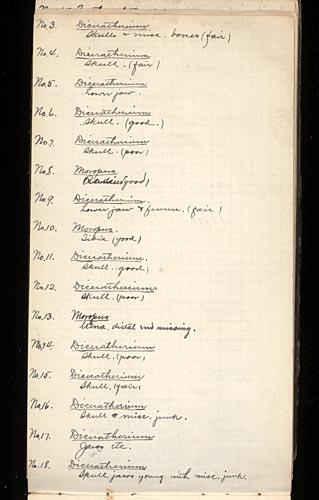 No. 3. Diceratherium
Skulls & misc. bones (fair)
No. 4. Diceratherium
Skull. (fair)
No. 5. Diceratherium
Lower jaw
No. 6. Diceratherium
Skull. (good.)
No. 7. Diceratherium
Skull. (poor)
No. 8. Moropus
(good)
No. 9. Diceratherium.
Lower jaw & femur. (fair)
No. 10. Moropus.
Tibia (good)
No. 11. Diceratherium.
Skull. (good)
No. 12 Diceratherium
Skull. (poor)
No. 13. Moropus
Ulna. distal end missing.
No. 14. Diceratherium
Skull. (poor)
No. 15. Diceratherium
Skull. (fair)
No. 16. Diceratherium
Skull & misc. junk.
No. 17. Diceratherium
Jaws etc.
No. 18. Diceratherium
Skull, jaws young. with misc. junk.